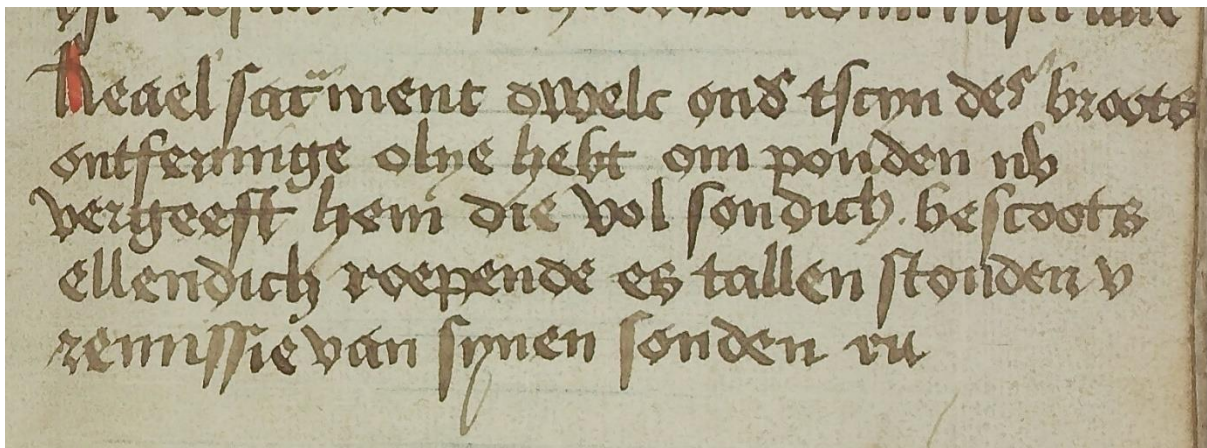 heael sacament dwelc ond tscyn des broots
ontfermige olye hebt om ponden nv
vergeeft hem die vol sondich bescoots
ellendich roepende es tallen stonden v
remissie van synen sonden nu